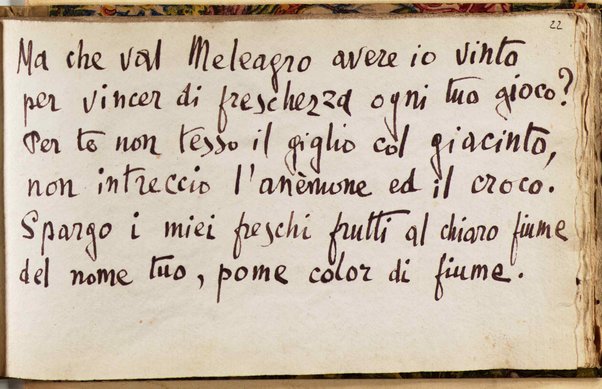 22
Ma che val Meleagro avere io vinto
per vincer di freschezza ogni tuo gioco?
Per te non tesso il giglio col giacinto,
non intreccio l'anèmone ed il croco.
Spargo i miei freschi frutti al chiaro fiume
del nome tuo, pome color di fiume.